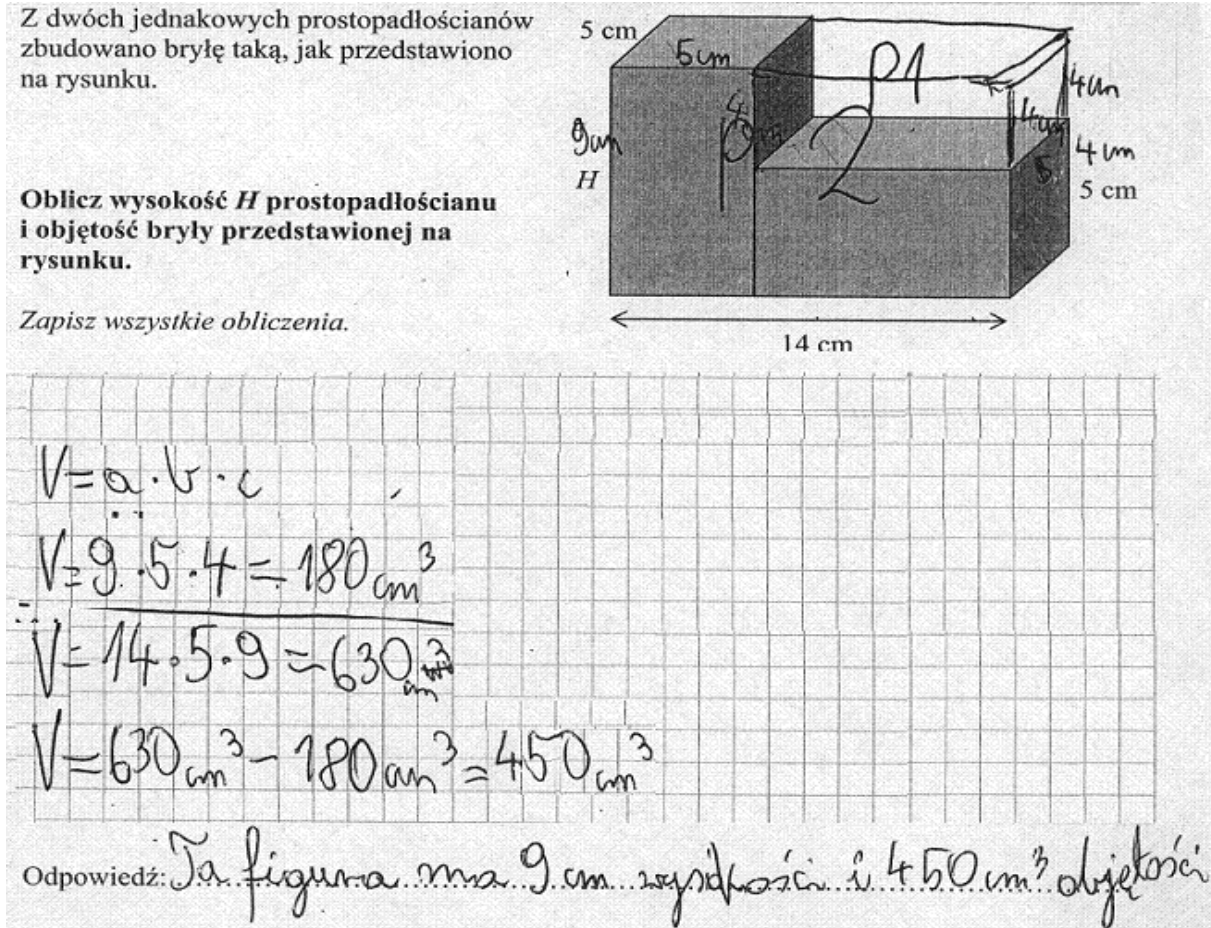 Z dwóch jednakowych prostopadłościanów
zbudowano bryłę taką, jak przedstawiono
na rysunku.
Oblicz wysokość H prostopadłościanu
i objętość bryły przedstawionej na
rysunku.
Zapisz wszystkie obliczenia.
5 cm
5cm
P1
4cm
4cm
4cm
9cm
P2
4 cm
H
5
5 cm
14 cm
V=a·b·c
V=9·5·4=180cm³
V=14·5·9=630cm³
V=630cm³-180cm³=450cm³
Odpowiedź: Ta figura ma 9 cm wysokości i 450 cm³ objętości